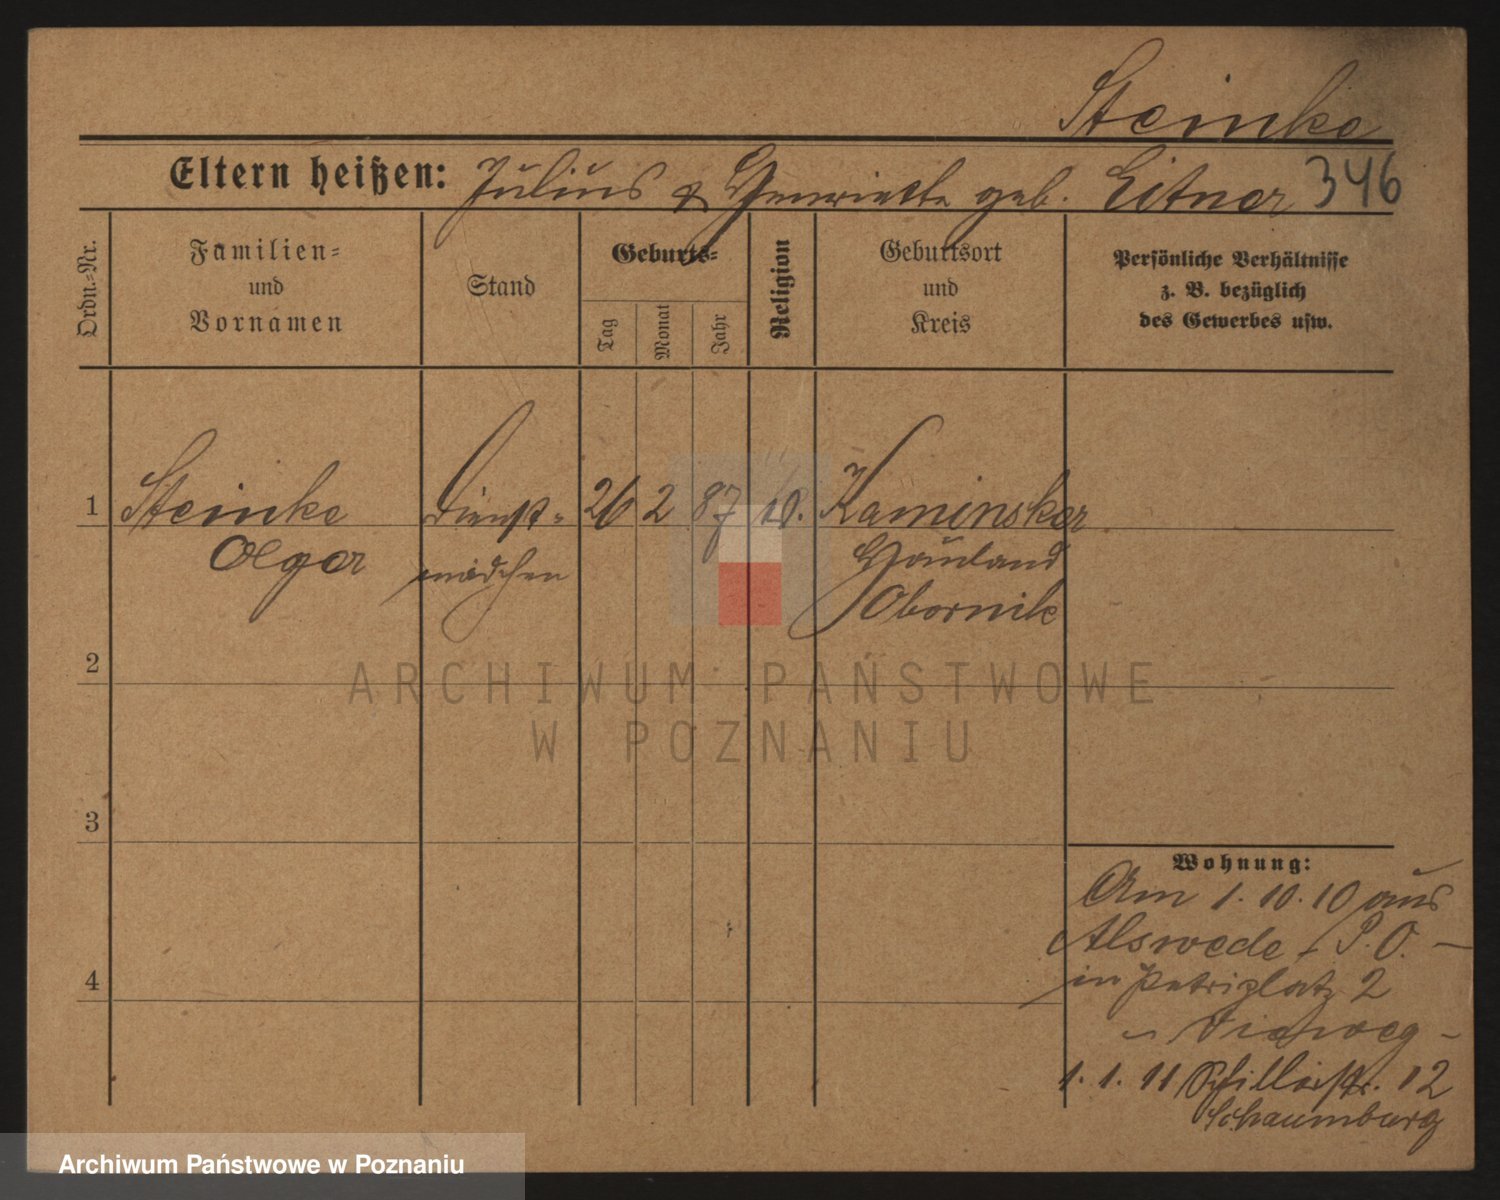 Steinke
Eltern heißen: Julius & Henriette geb. Eitner 346
Ordn.-Nr.
Familien-
und
Vornamen
Stand
Geburts-
Tag
Monat
Jahr
Religion
Geburtsort
und
Kreis
Persönliche Verhältnisse
z. B. bezüglich
des Gewerbes usw.
1 Steinke Dienst- 26 2 87 Kaminsker
Olga mädchen Hauland
Obornik
2
3
4
Wohnung:
Am 1. 10. 10 aus
Alswede - P. O. -
in Petriplatz 2
- Vieweg -
1. 1. 11 Schillerstr. 12
Schaumburg
ARCHIWUM PAŃSTWOWE
W POZNANIU
Archiwum Państwowe w Poznaniu